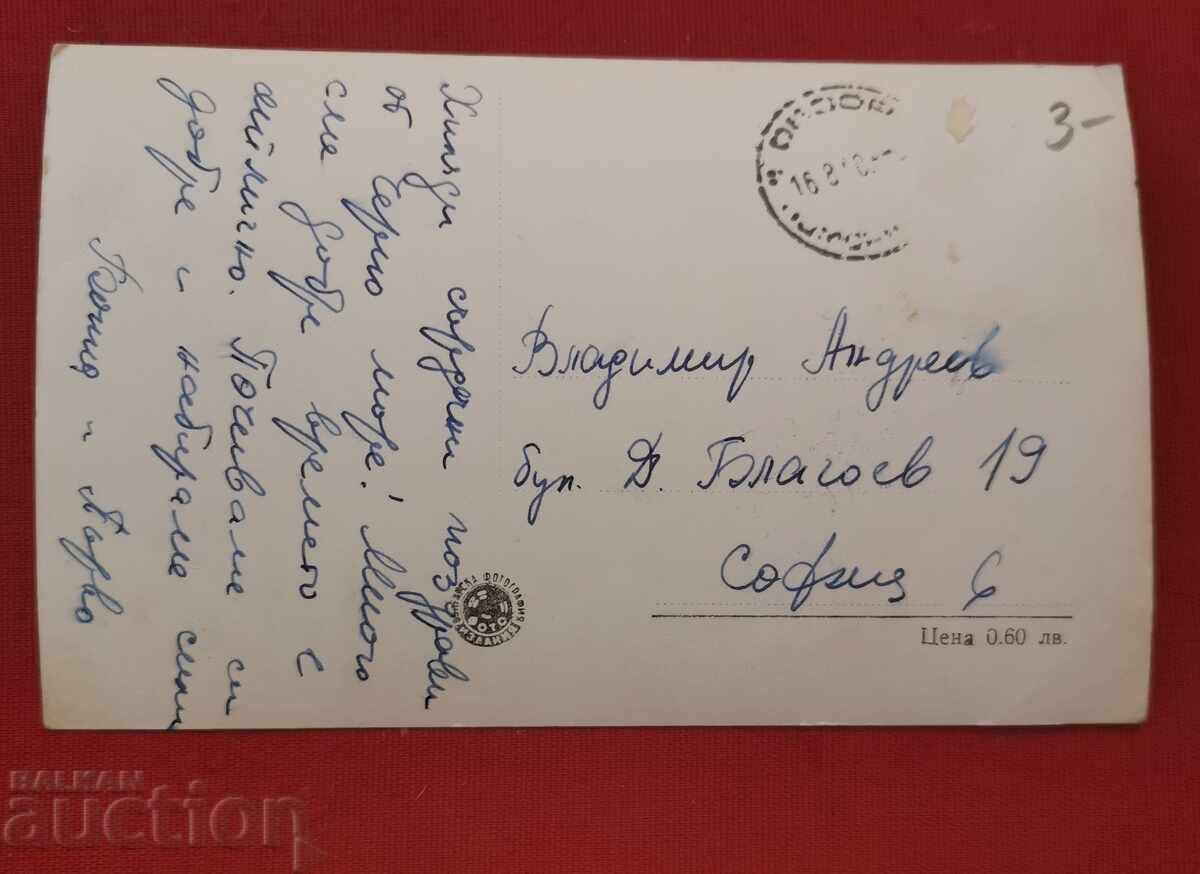 Хиляди сърдечни поздрави
от Черно море! Много
сме добре времето е
отлично. Почиваме си
добре и набираме сили
и
3-
16.8
Владимир Андреев
бул. Д. Благоев 19
София 6
БЪЛГАРСКА ФОТОГРАФИЯ
ФОТО
ИЗДАНИЯ
Цена 0.60 лв.
BALKAN
auction